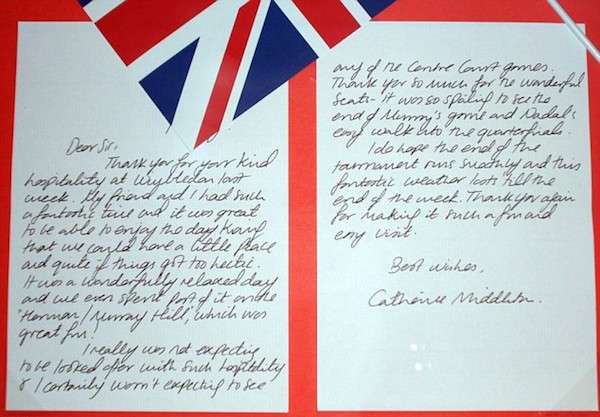 Dear Sir,
Thank you for your kind
hospitality at Wimbledon last
week. My friend and I had such
a fantastic time and it was great
to be able to enjoy the day knowing
that we could have a little peace
and quite if things got too hectic.
It was a wonderfully relaxed day
and we even spent part of it on the
'Henman / Murray Hill', which was
great fun!
I really was not expecting
to be looked after with such hospitality
& I certainly wasn't expecting to see
any of the Centre Court games.
Thank you so much for the wonderful
seats - it was so spoiling to see the
end of Murray's game and Nadal's
easy walk into the quarterfinals.
I do hope the end of the
tournament runs smoothly and this
fantastic weather lasts till the
end of the week. Thank you again
for making it such a fun and
easy visit.
Best wishes,
Catherine Middleton.